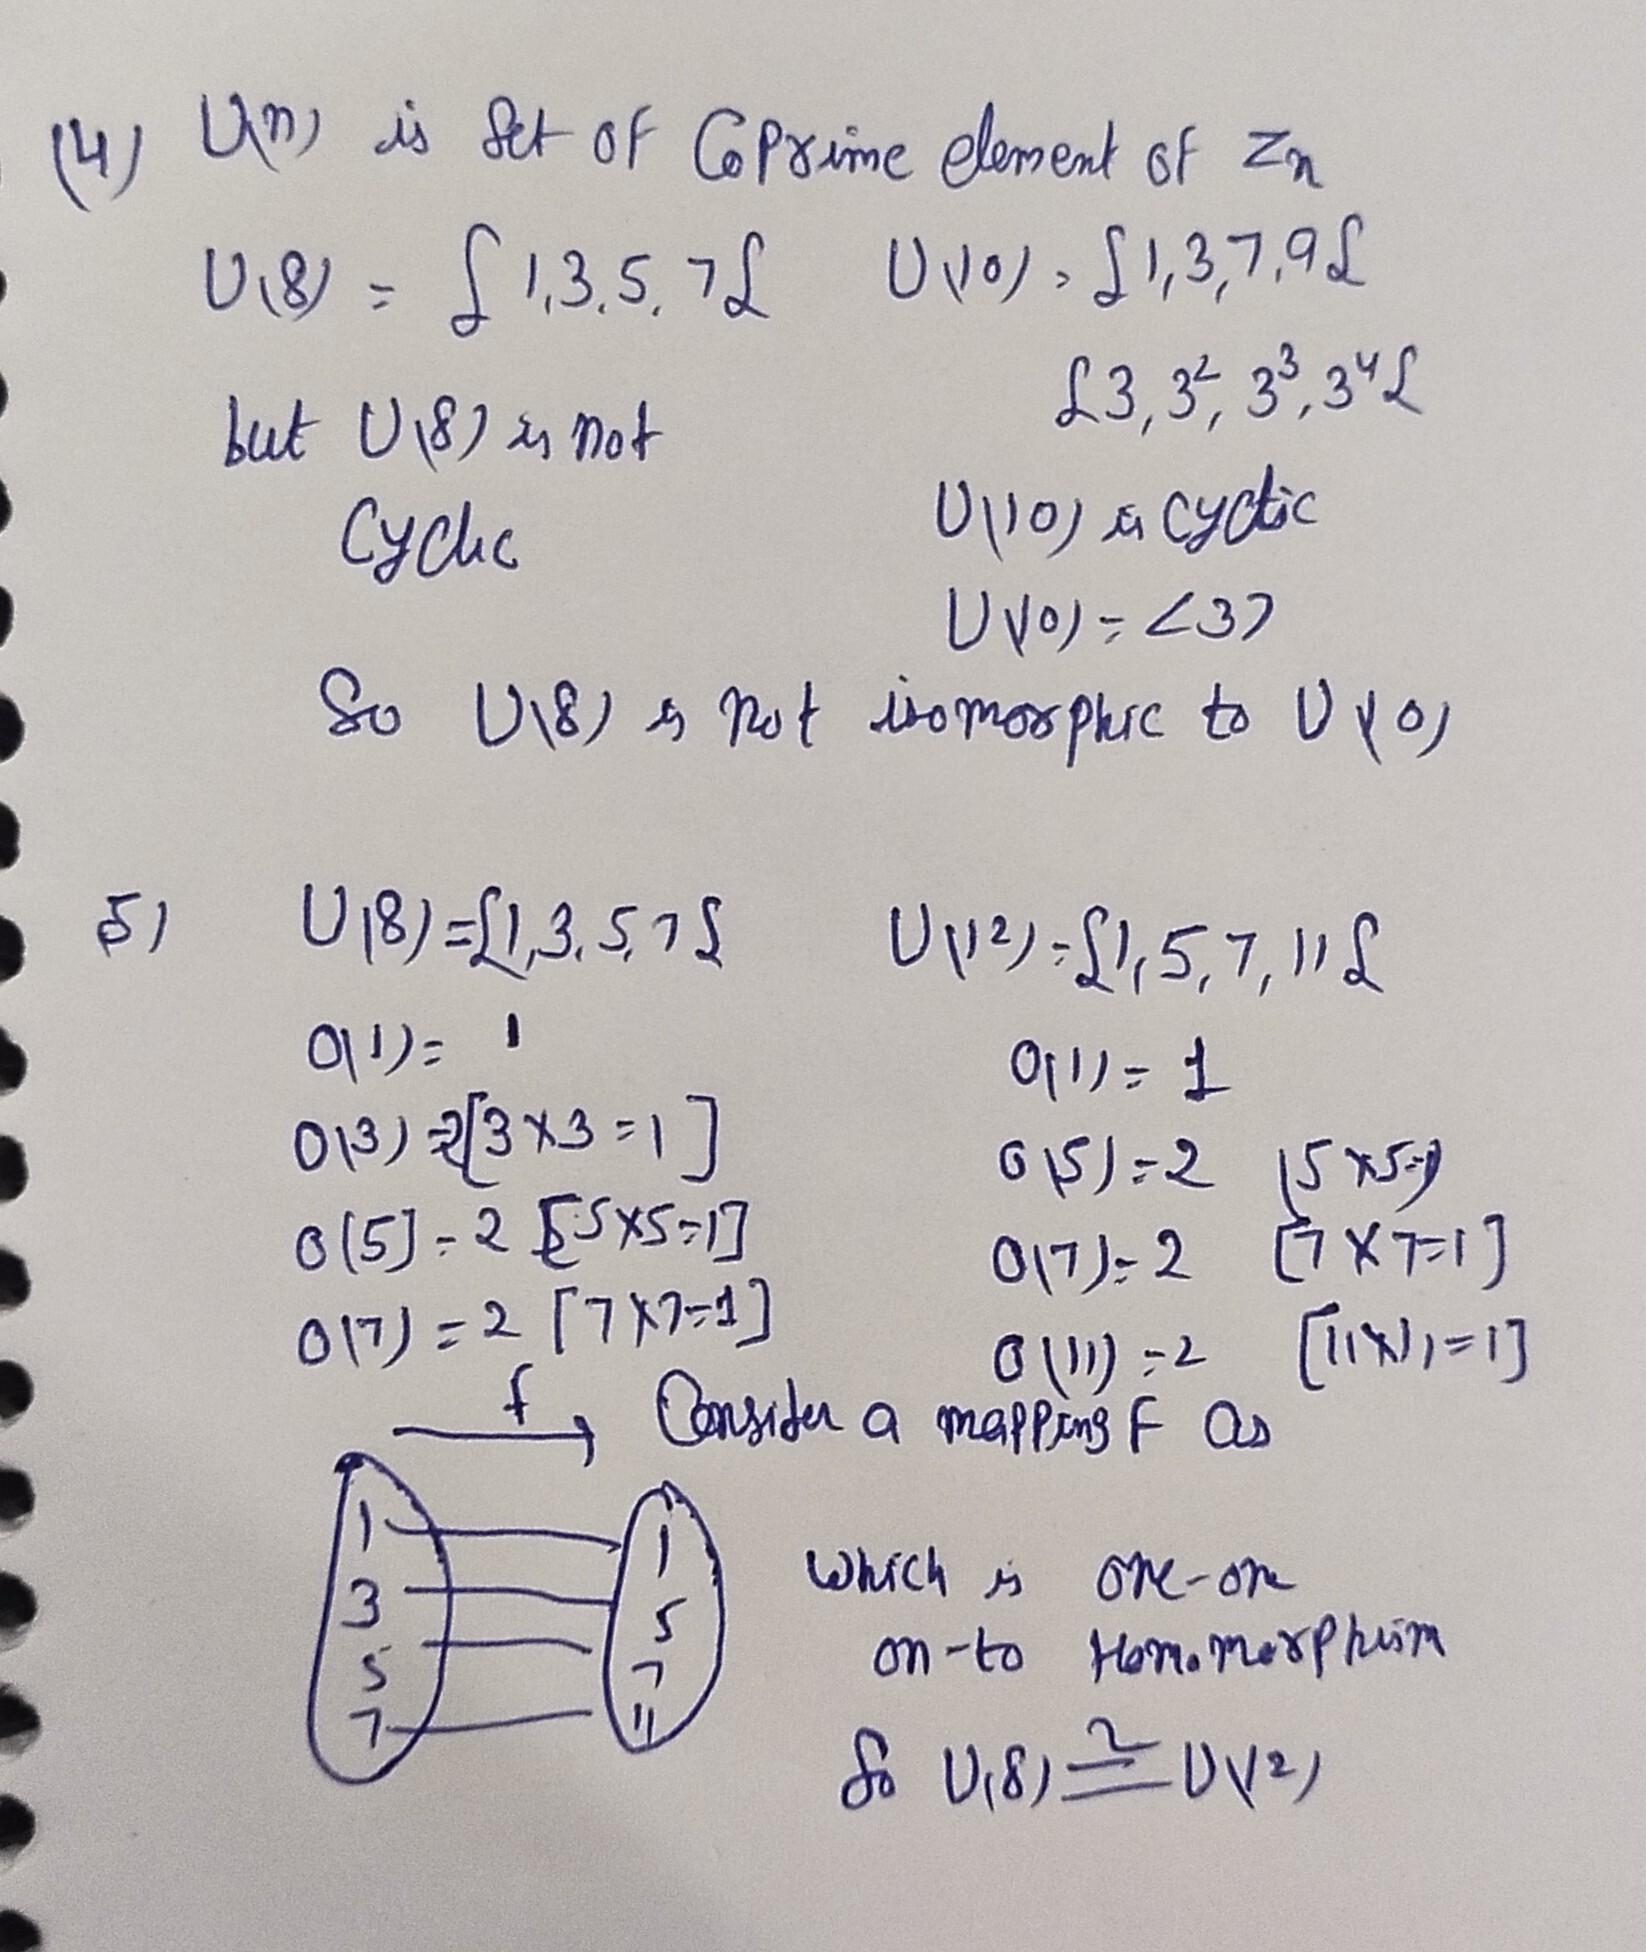 (4) U(n) is Set of Coprime element of Zn
U(8) = {1,3,5,7} U(10) = {1,3,7,9}
{3, 3², 3³, 3⁴}
but U(8) is not
Cyclic
U(10) is cyclic
U(10) = <3>
So U(8) is not isomorphic to U(10)
5) U(8) = {1,3,5,7} U(12) = {1,5,7,11}
O(1) = 1 O(1) = 1
O(3) = 2 [3×3=1] O(5) = 2 (5×5=1)
O(5] = 2 [5×5=1] O(7) = 2 [7×7=1]
O(7) = 2 [7×7=1] O(11) = 2 [11×11=1]
f Consider a mapping F as
1 1
3 5
5 7
7 11
which is one-one
on-to Homomorphism
So U(8) ≅ U(12)